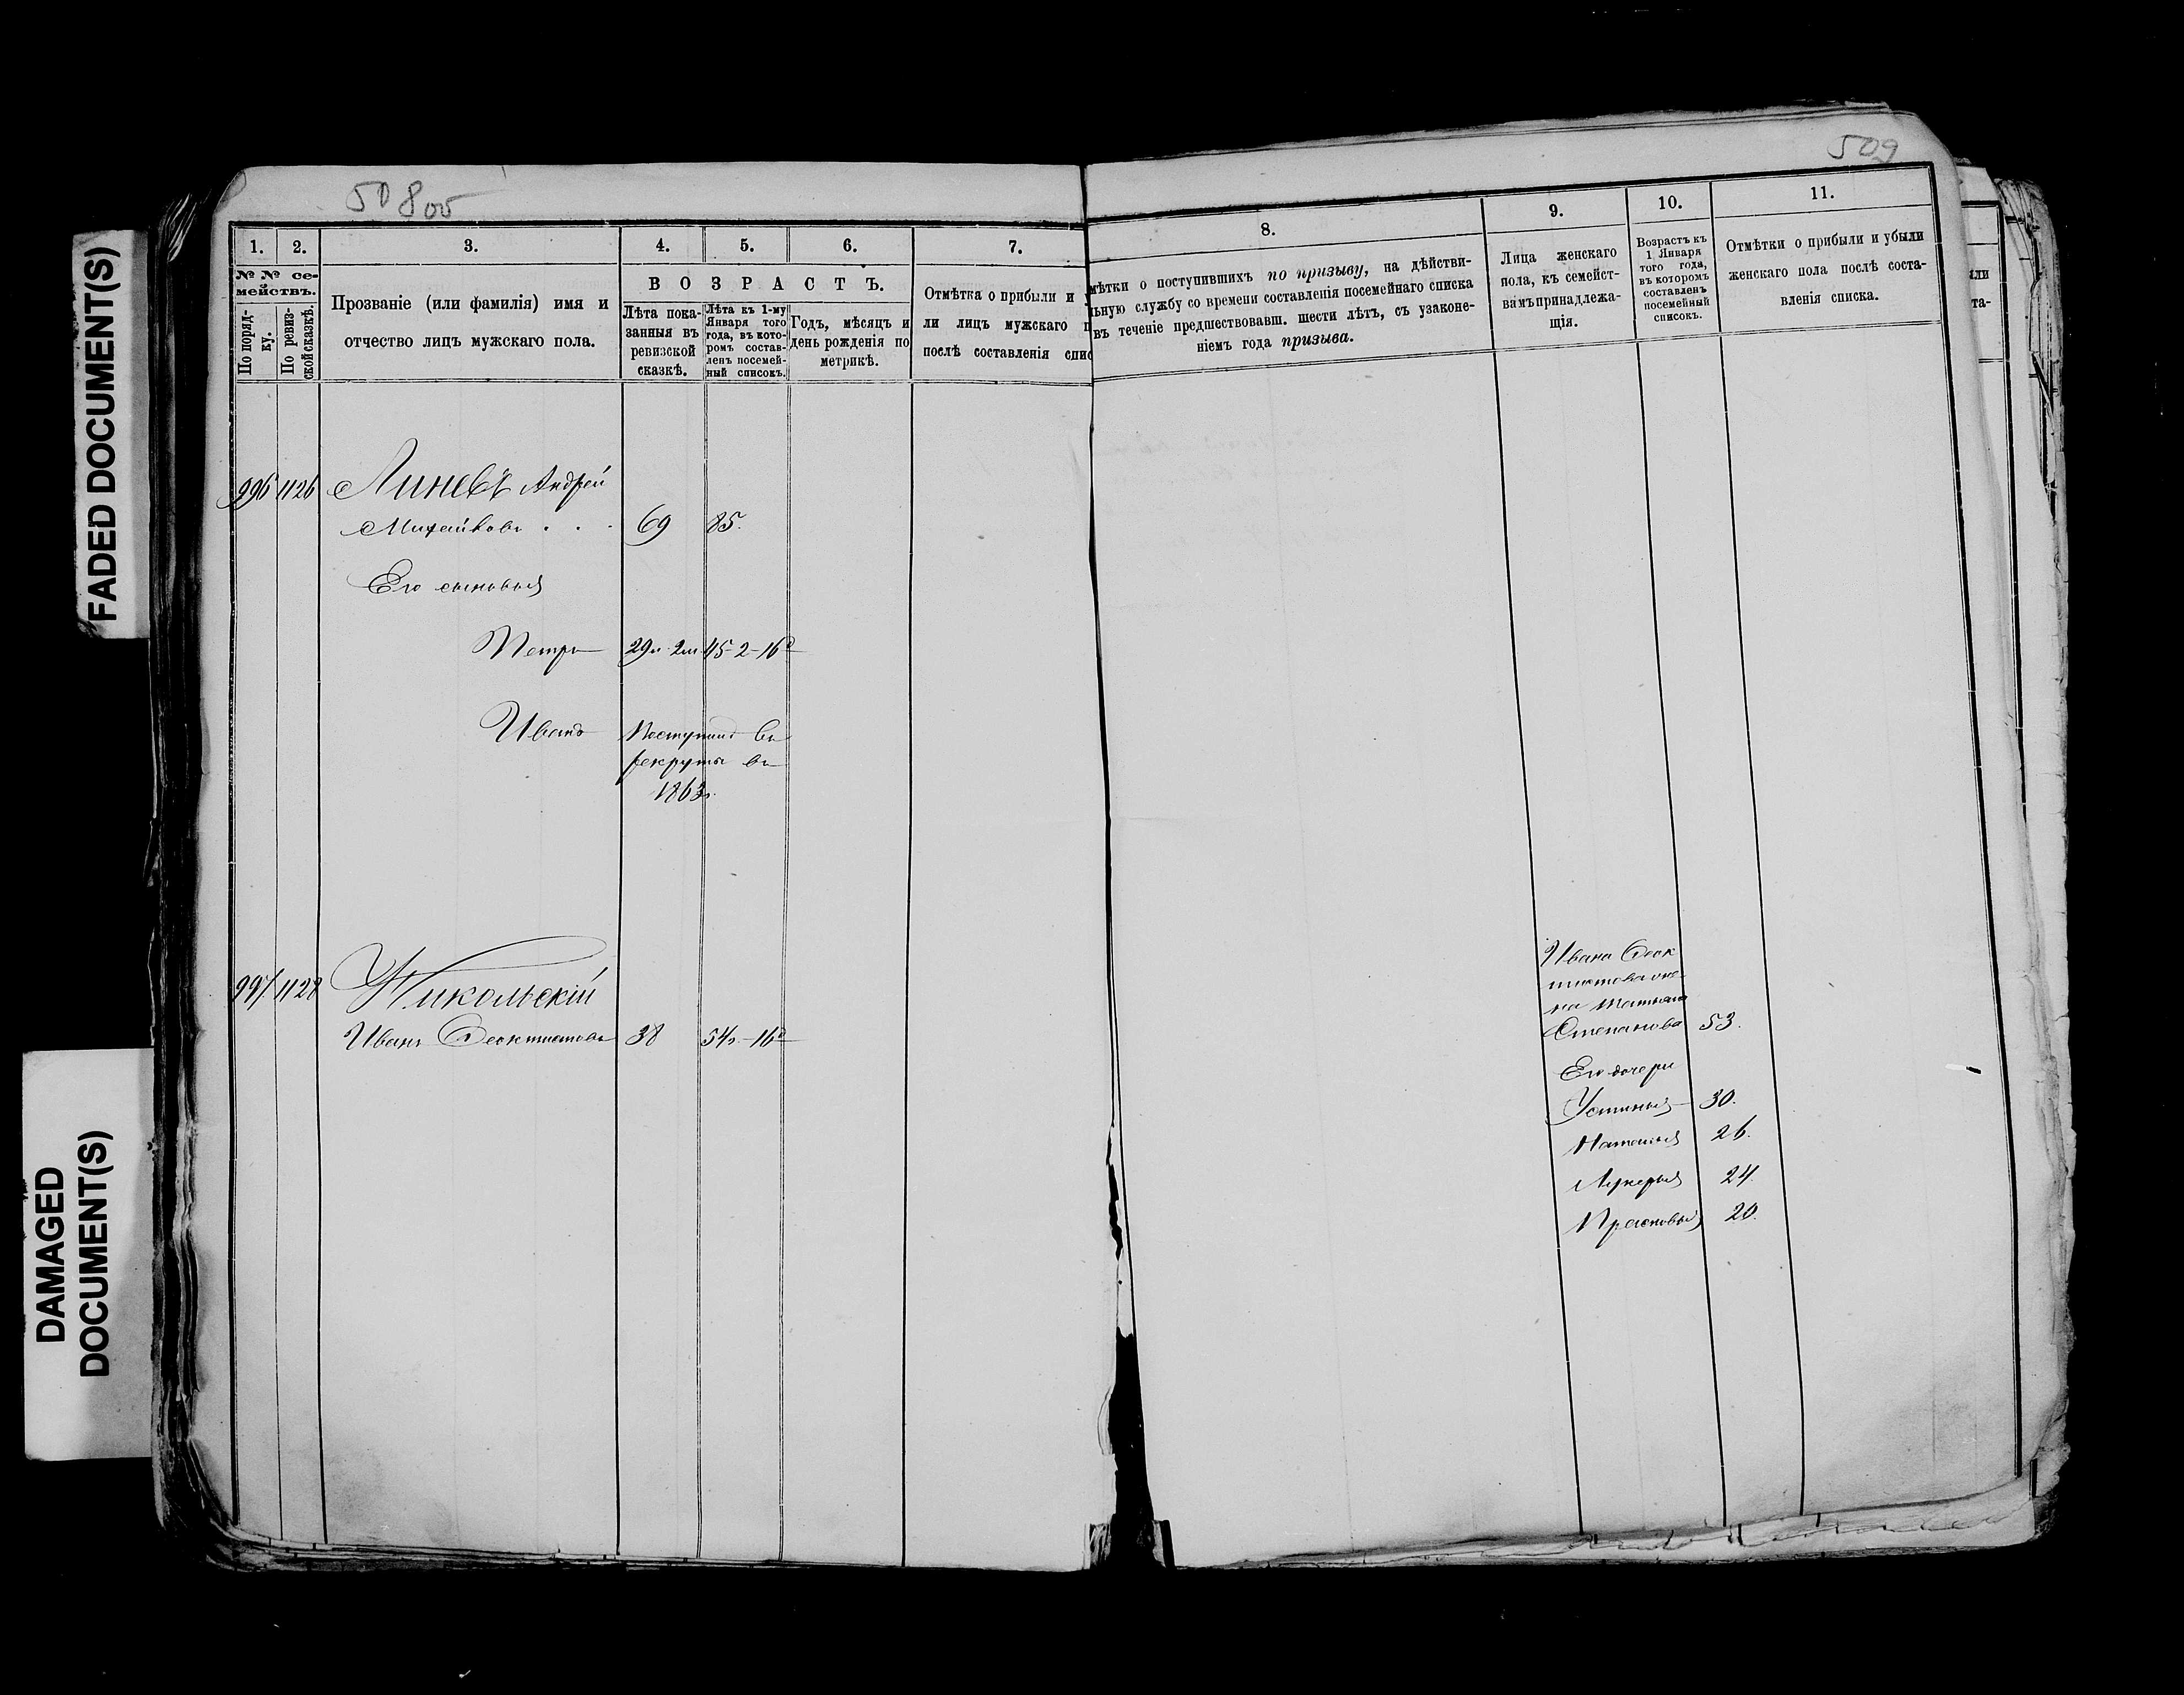 FADED DOCUMENT(S)
DAMAGED
DOCUMENT(S)
508об
1.
2.
3.
4.
5.
6.
7.
№ № се-
мействъ.
По поряд-
ку.
По ревиз-
ской сказкѣ.
Прозваніе (или фамилія) имя и
отчество лицъ мужскаго пола.
ВОЗРАСТЪ.
Лѣта пока-
занныя въ
ревизской
сказкѣ.
Лѣта къ 1-му
Января того
года, въ кото-
ромъ состав-
ленъ посемей-
ный списокъ.
Годъ, мѣсяцъ и
день рожденія по
метрикѣ.
Отмѣтка о прибыли и
ли лицъ мужскаго п
послѣ составленія спис
996 1126 Линевъ Андрей
Михайловъ . . . 69 85.
Его сыновья
Петръ 29л 2м 45-2-16д
Иванъ Поступилъ въ
рекруты въ
1863г.
997. 1128 Никольскій
Иванъ Феоктистовъ 38 54г.-16д
509
8.
9.
10.
11.
мѣтки о поступившихъ по призыву, на дѣйстви-
льную службу со времени составленія посемейнаго списка
въ теченіе предшествовавш. шести лѣтъ, съ узаконе-
ніемъ года призыва.
Лица женскаго
пола, къ семейст-
вамъ принадлежа-
щія.
Возрастъ къ
1 Января
того года,
въ которомъ
составленъ
посемейный
списокъ.
Отмѣтки о прибыли и убыли
женскаго пола послѣ соста-
вленія списка.
Ивана Феок
тистова же
на Татьяна
Степанова 53.
Его дочери
Устинья 30.
Наталья 26.
Лукерья 24.
Прасковья 20.
ли
та-